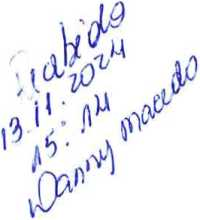 Recebido
13.11.2024
15:14
Wanny macedo